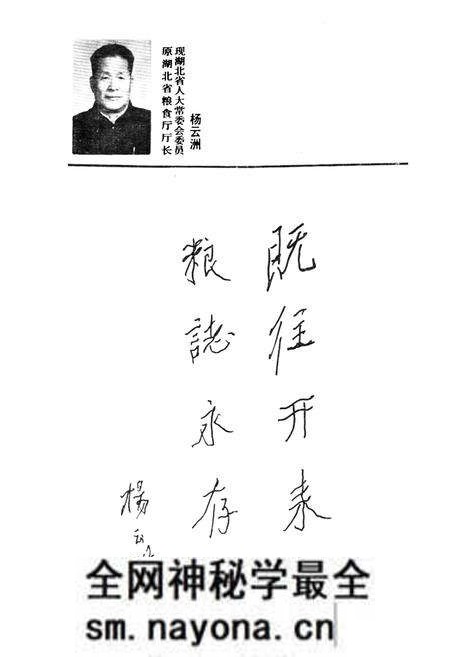 杨云洲
现湖北省人大常委会委员
原湖北省粮食厅厅长
既往开来
粮誌永存
楊
全网神秘学最全
sm.nayona.cn